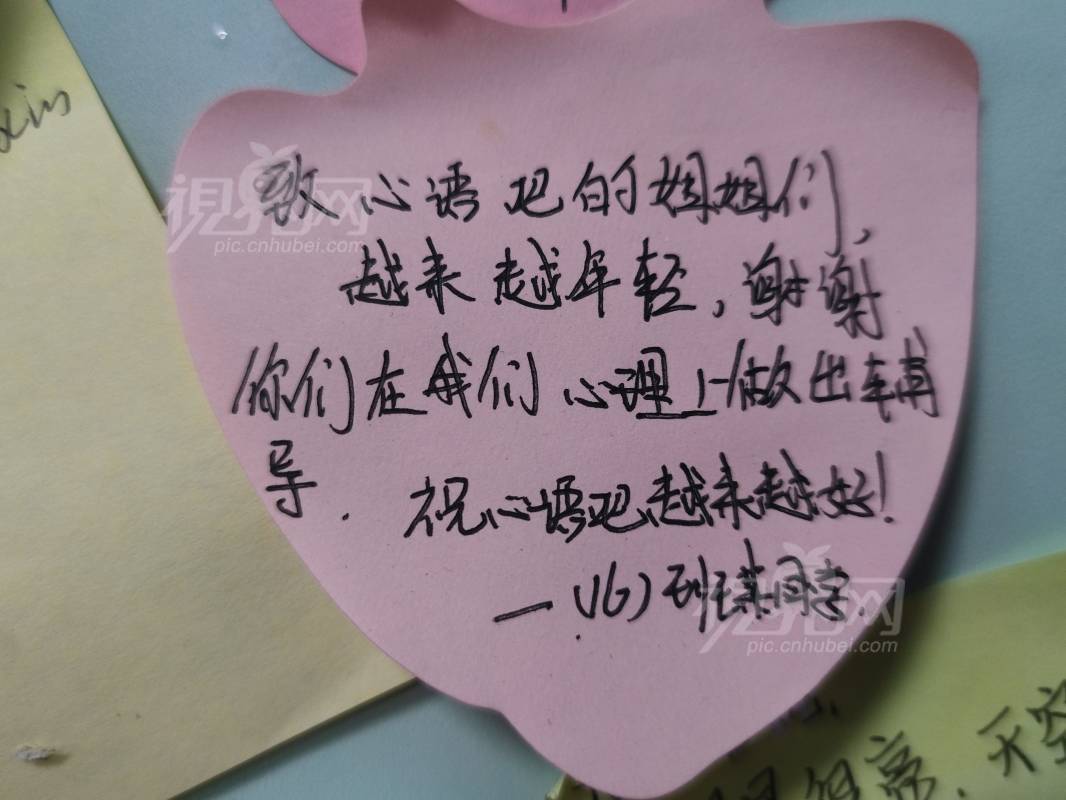 xin
致心语吧的姐姐们,
越来越年轻,谢谢
你们在我们心理上做出辅
导.祝心语吧越来越好!
—(16)班某同学.
視界网
pic.cnhubei.com
視界网
pic.cnhubei.com
帝.天空